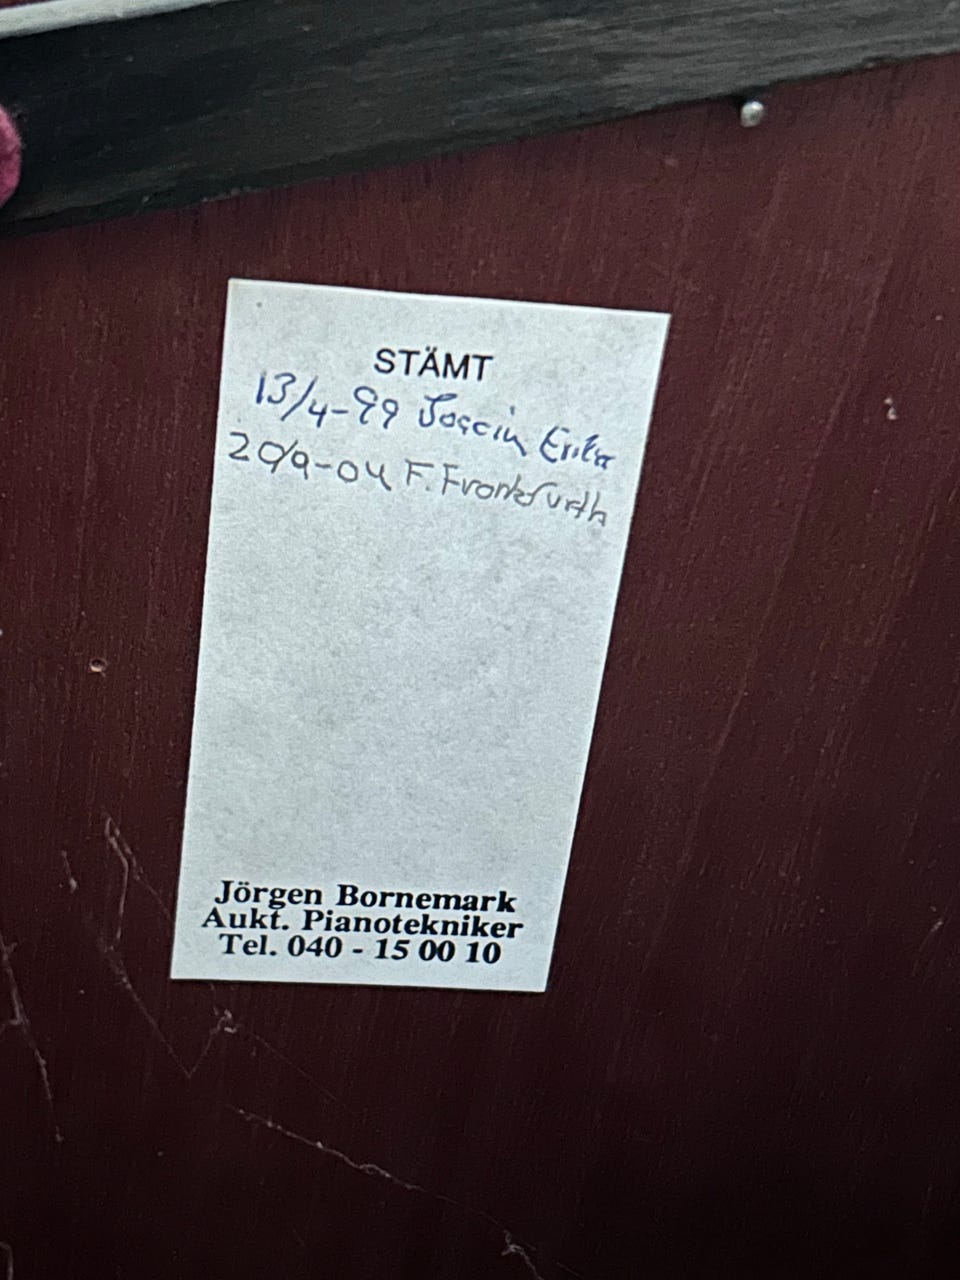 STÄMT
13/4-99
20/9-04 F. Frankfurth
Jörgen Bornemark
Aukt. Pianotekniker
Tel. 040 - 15 00 10